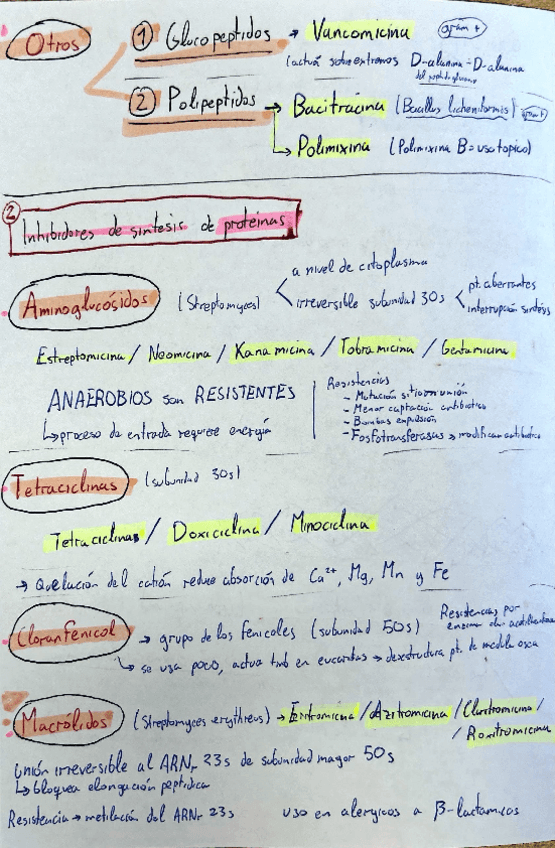 Otros
① Glucopeptidos → Vancomicina (gram +)
(actúa sobre extremos D-alanina-D-alanina
del peptidoglucano
② Polipeptidos → Bacitracina (Bacillus licheniformis) gram +
→ Polimixina (Polimixina B = uso topico)
② Inhibidores de síntesis de proteinas
Aminoglucósidos (Streptomyces) < a nivel de citoplasma
irreversible subunidad 30s < pt. aberrantes
interrupción síntesis
Estreptomicina / Neomicina / Kanamicina / Tobramicina / Gentamicina
ANAEROBIOS son RESISTENTES
↳ proceso de entrada requiere energía
Resistencias
- Mutación sitio unión
- Menor captación antibiotico
- Bombas expulsión
- Fosfotransferasas → modifican antibiotico
Tetraciclinas (subunidad 30s)
Tetraciclinas / Doxiciclina / Minociclina
→ Quelación del catión reduce absorción de Ca²⁺, Mg, Mn y Fe
Cloranfenicol → grupo de los fenicoles (subunidad 50s)
Resistencias por
↳ se usa poco, actua tmb en eucariotas → pt. de medula osea
Macrólidos (Streptomyces erythreus) → Eritromicina / Azitromicina / Claritromicina /
/ Roxitromicina
Unión irreversible al ARNr 23s de subunidad mayor 50s
↳ bloquea elongación peptidica
Resistencia → metilación del ARNr 23s uso en alergicos a β-lactamicos